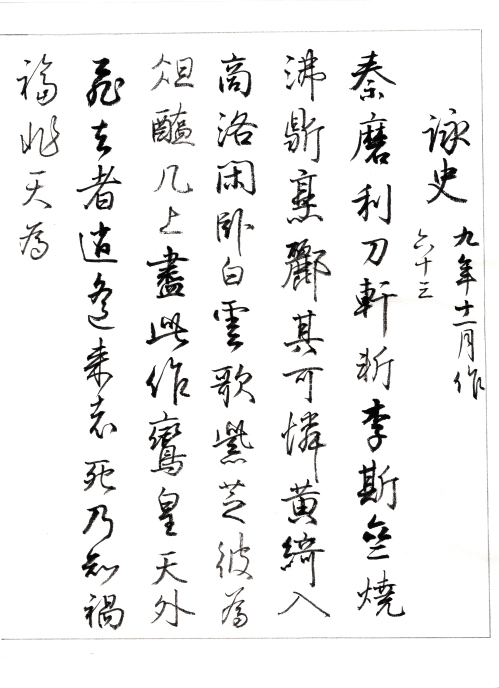 詠史
九年十一月作
六十三
秦磨利刀軒斬李斯齊燒
沸鼎烹酈其可憐黃綺入
商洛閑臥白雲歌紫芝彼為
俎醢几上盡此作鸞皇天外
飛去者逍遙来者死乃知禍
福非天為